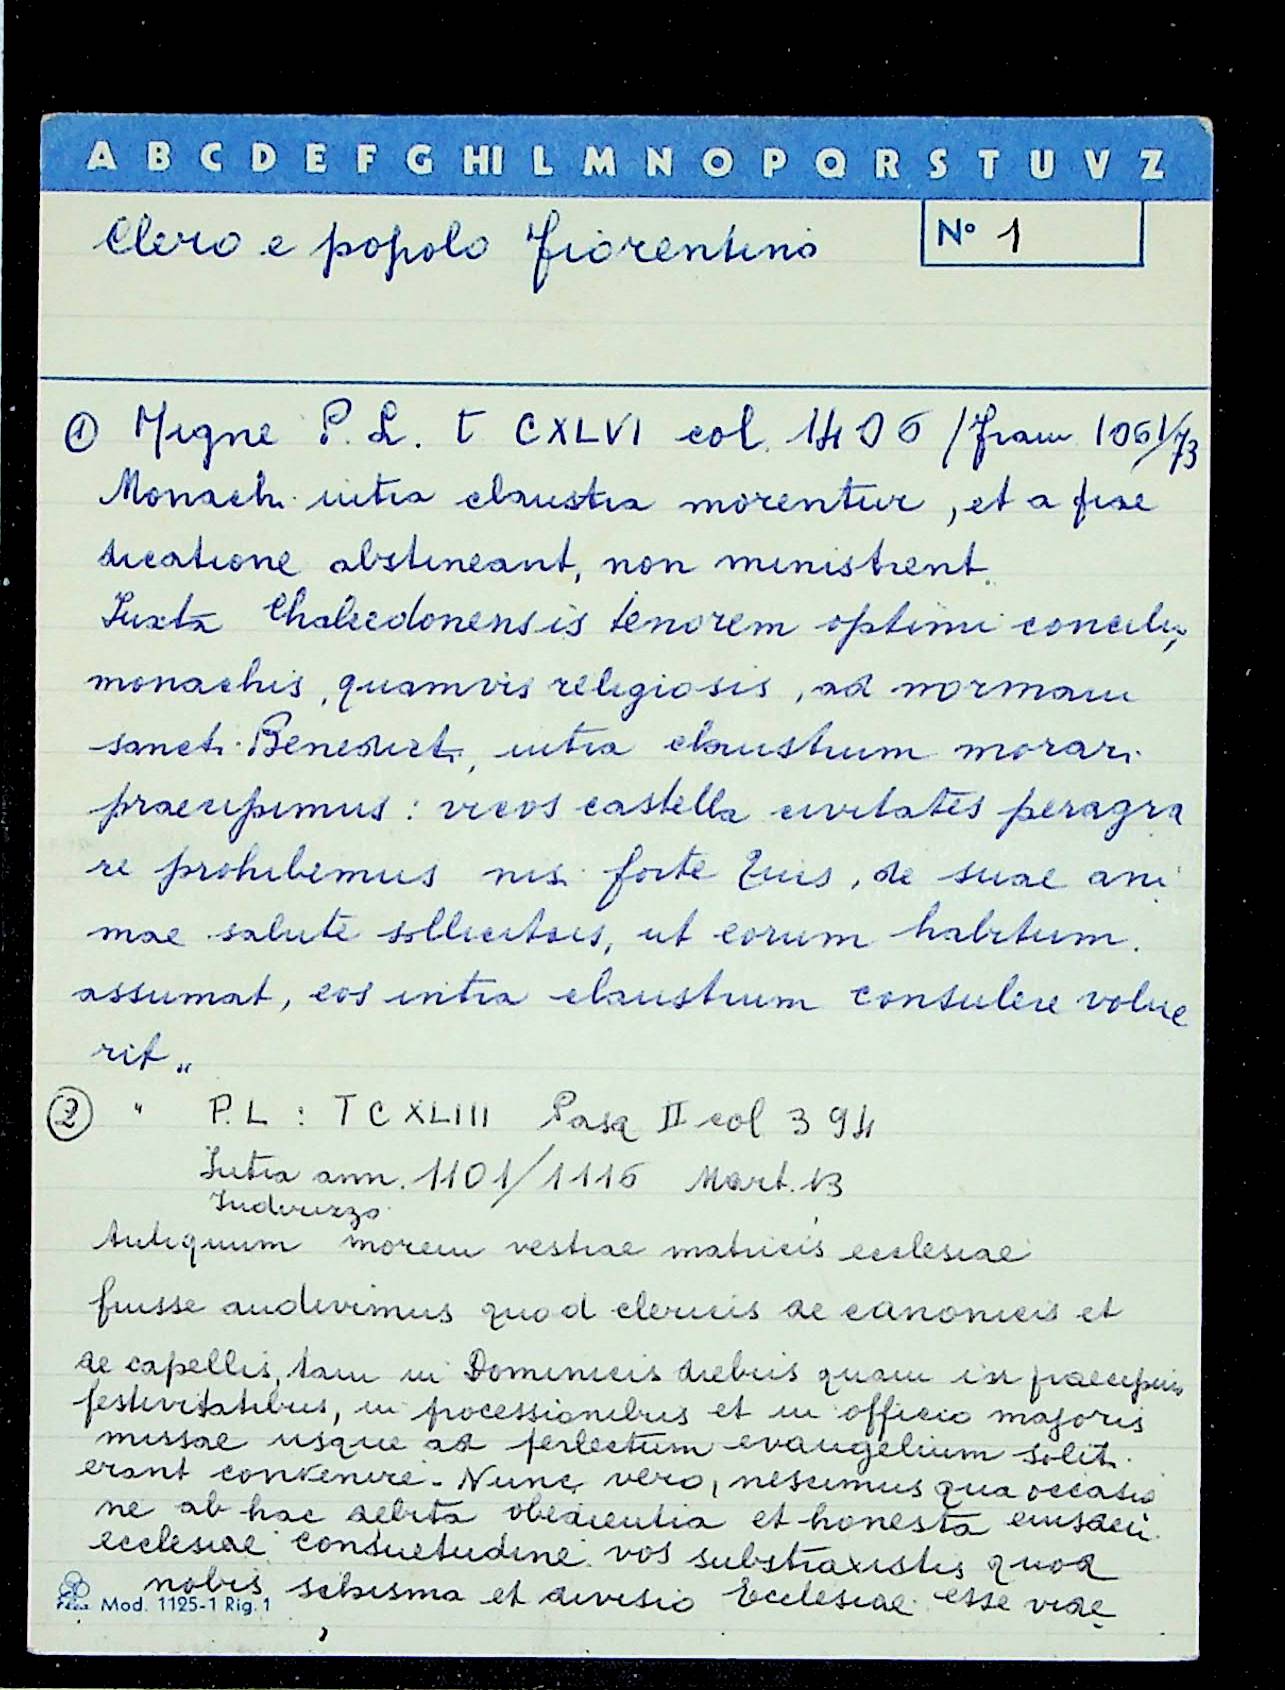 A B C D E F G HI L M N O P Q R S T U V Z
Clero e popolo fiorentino
Nº 1
① Migne P.L. t CXLVI col. 1406 / 1061/73
Monachi intra claustra morentur, et a prae
dicatione abstineant, non ministrent.
Iuxta Chalcedonensis tenorem optimi concilii,
monachis, quamvis religiosis, ad normam
sancti Benedicti, intra claustrum morari
praecipimus: vicos castella civitates peragra
re prohibemus nisi forte quis, de suae ani
mae salute sollicitus, ut eorum habitum.
assumat, eos intra claustrum consulere volue
rit „
② " P.L : T CXLIII Pasq II col 394
Intra ann. 1101/1116 Mart. 13
Indirizzo
Antiquum morem vestrae matricis ecclesiae
fuisse audivimus quod clericis de canonicis et
de capellis, tam in Dominicis diebus quam in praecipuis
festivitatibus, in processionibus et in officio majoris
missae usque ad perlectum evangelium soliti
erant convenire. Nunc vero, nescimus qua occasio
ne ab hac debita obedientia et honesta eiusdem
ecclesiae consuetudine vos substraxistis quod
nobis schisma et divisio Ecclesiae esse vide
Mod. 1125-1 Rig. 1